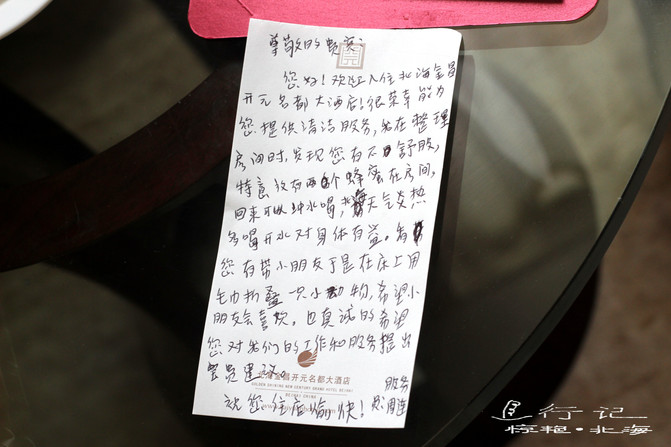 尊敬的贾宾:
您好!欢迎入住北海金昌
开元名都大酒店!很荣幸能为
您提供清洁服务,我在整理
房间时,发现您有不舒服,
特意放有两个蜂蜜在房间,
回来可以冲水喝,天气炎热
多喝开水对身体有益。看
您有带小朋友于是在床上用
毛巾折叠一只小动物,希望小
朋友会喜欢,也真诚的希望
您对我们的工作和服务提出
宝贵建议。
北海金昌开元名都大酒店
GOLDEN SHINING NEW CENTURY GRAND HOTEL BEIHAI
BEIHAI CHINA
服务
祝您住店愉快!
行记
惊艳·北海